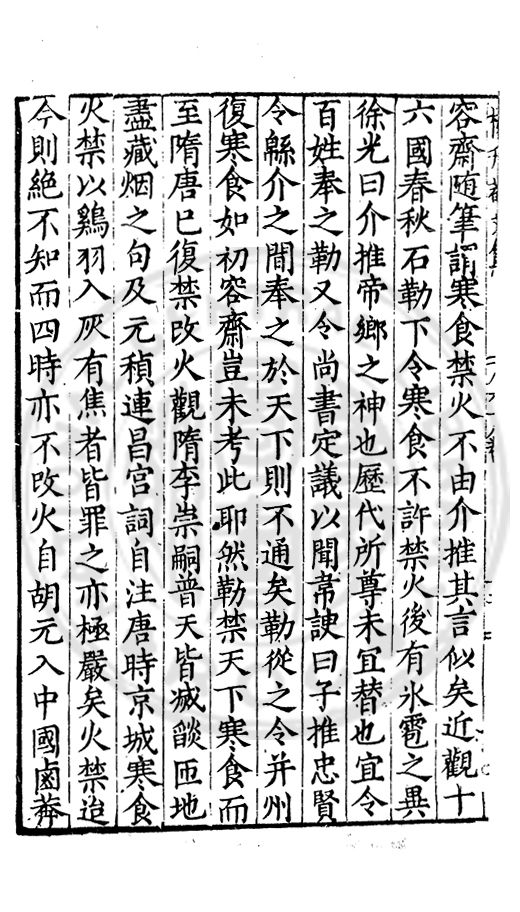 容齋随筆謂寒食禁火不由介推其言似矣近觀十
六國春秋石勒下令寒食不許禁火後有氷雹之異
徐光曰介推帝鄉之神也歷代所尊未冝替也宜令
百姓奉之勒又令尚書定議以聞韋謏曰子推忠賢
令緜介之間奉之於天下則不通矣勒從之令并州
復寒食如初容齋豈未考此耶然勒禁天下寒食而
至隋唐已復禁改火觀隋李崇嗣普天皆滅燄匝地
盡藏烟之句及元稹連昌宫詞自注唐時京城寒食
火禁以鷄羽入灰有焦者皆罪之亦極嚴矣火禁迨
今則絶不知而四時亦不改火自胡元入中國鹵莽